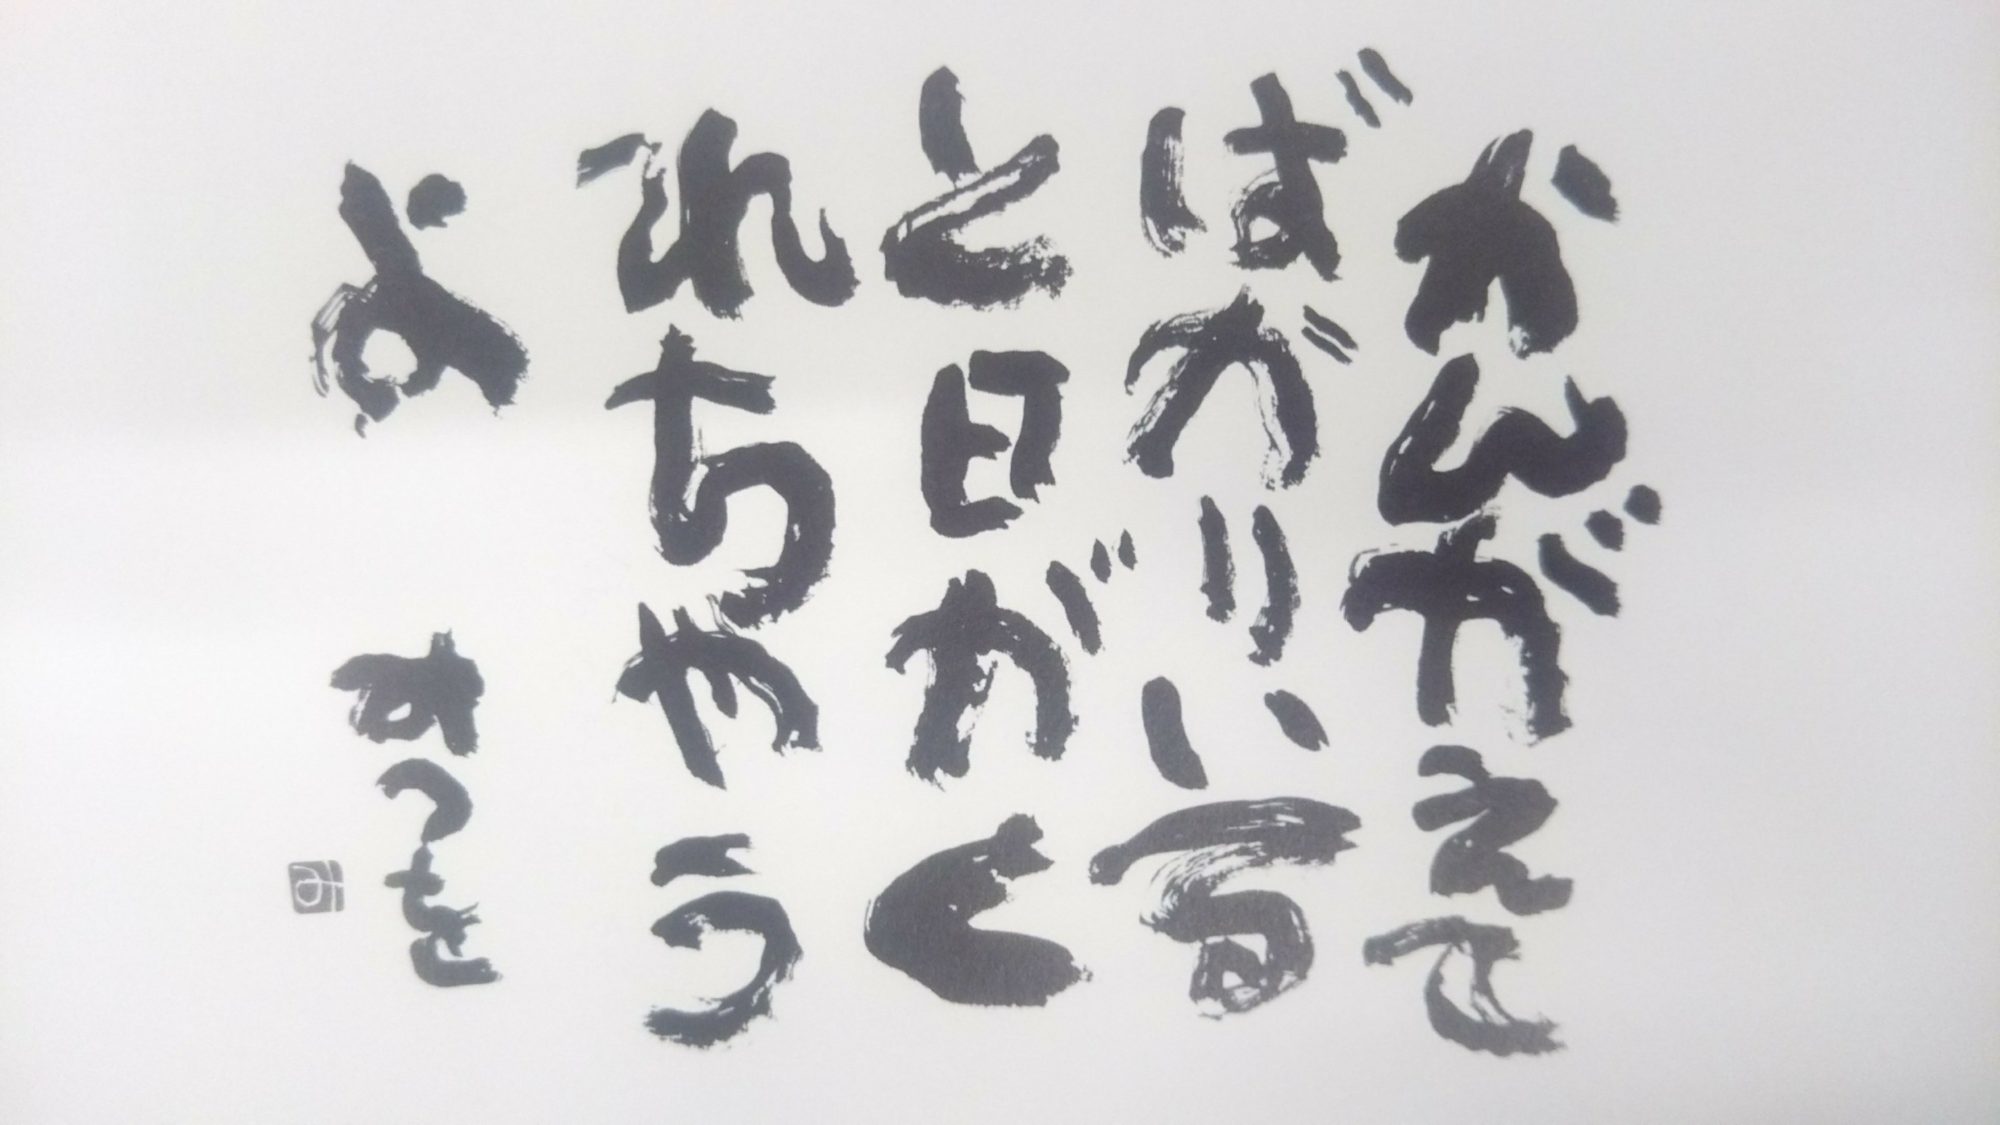 かんがえて
ばがりいる
と日がく
れちゃう
よ
みつを